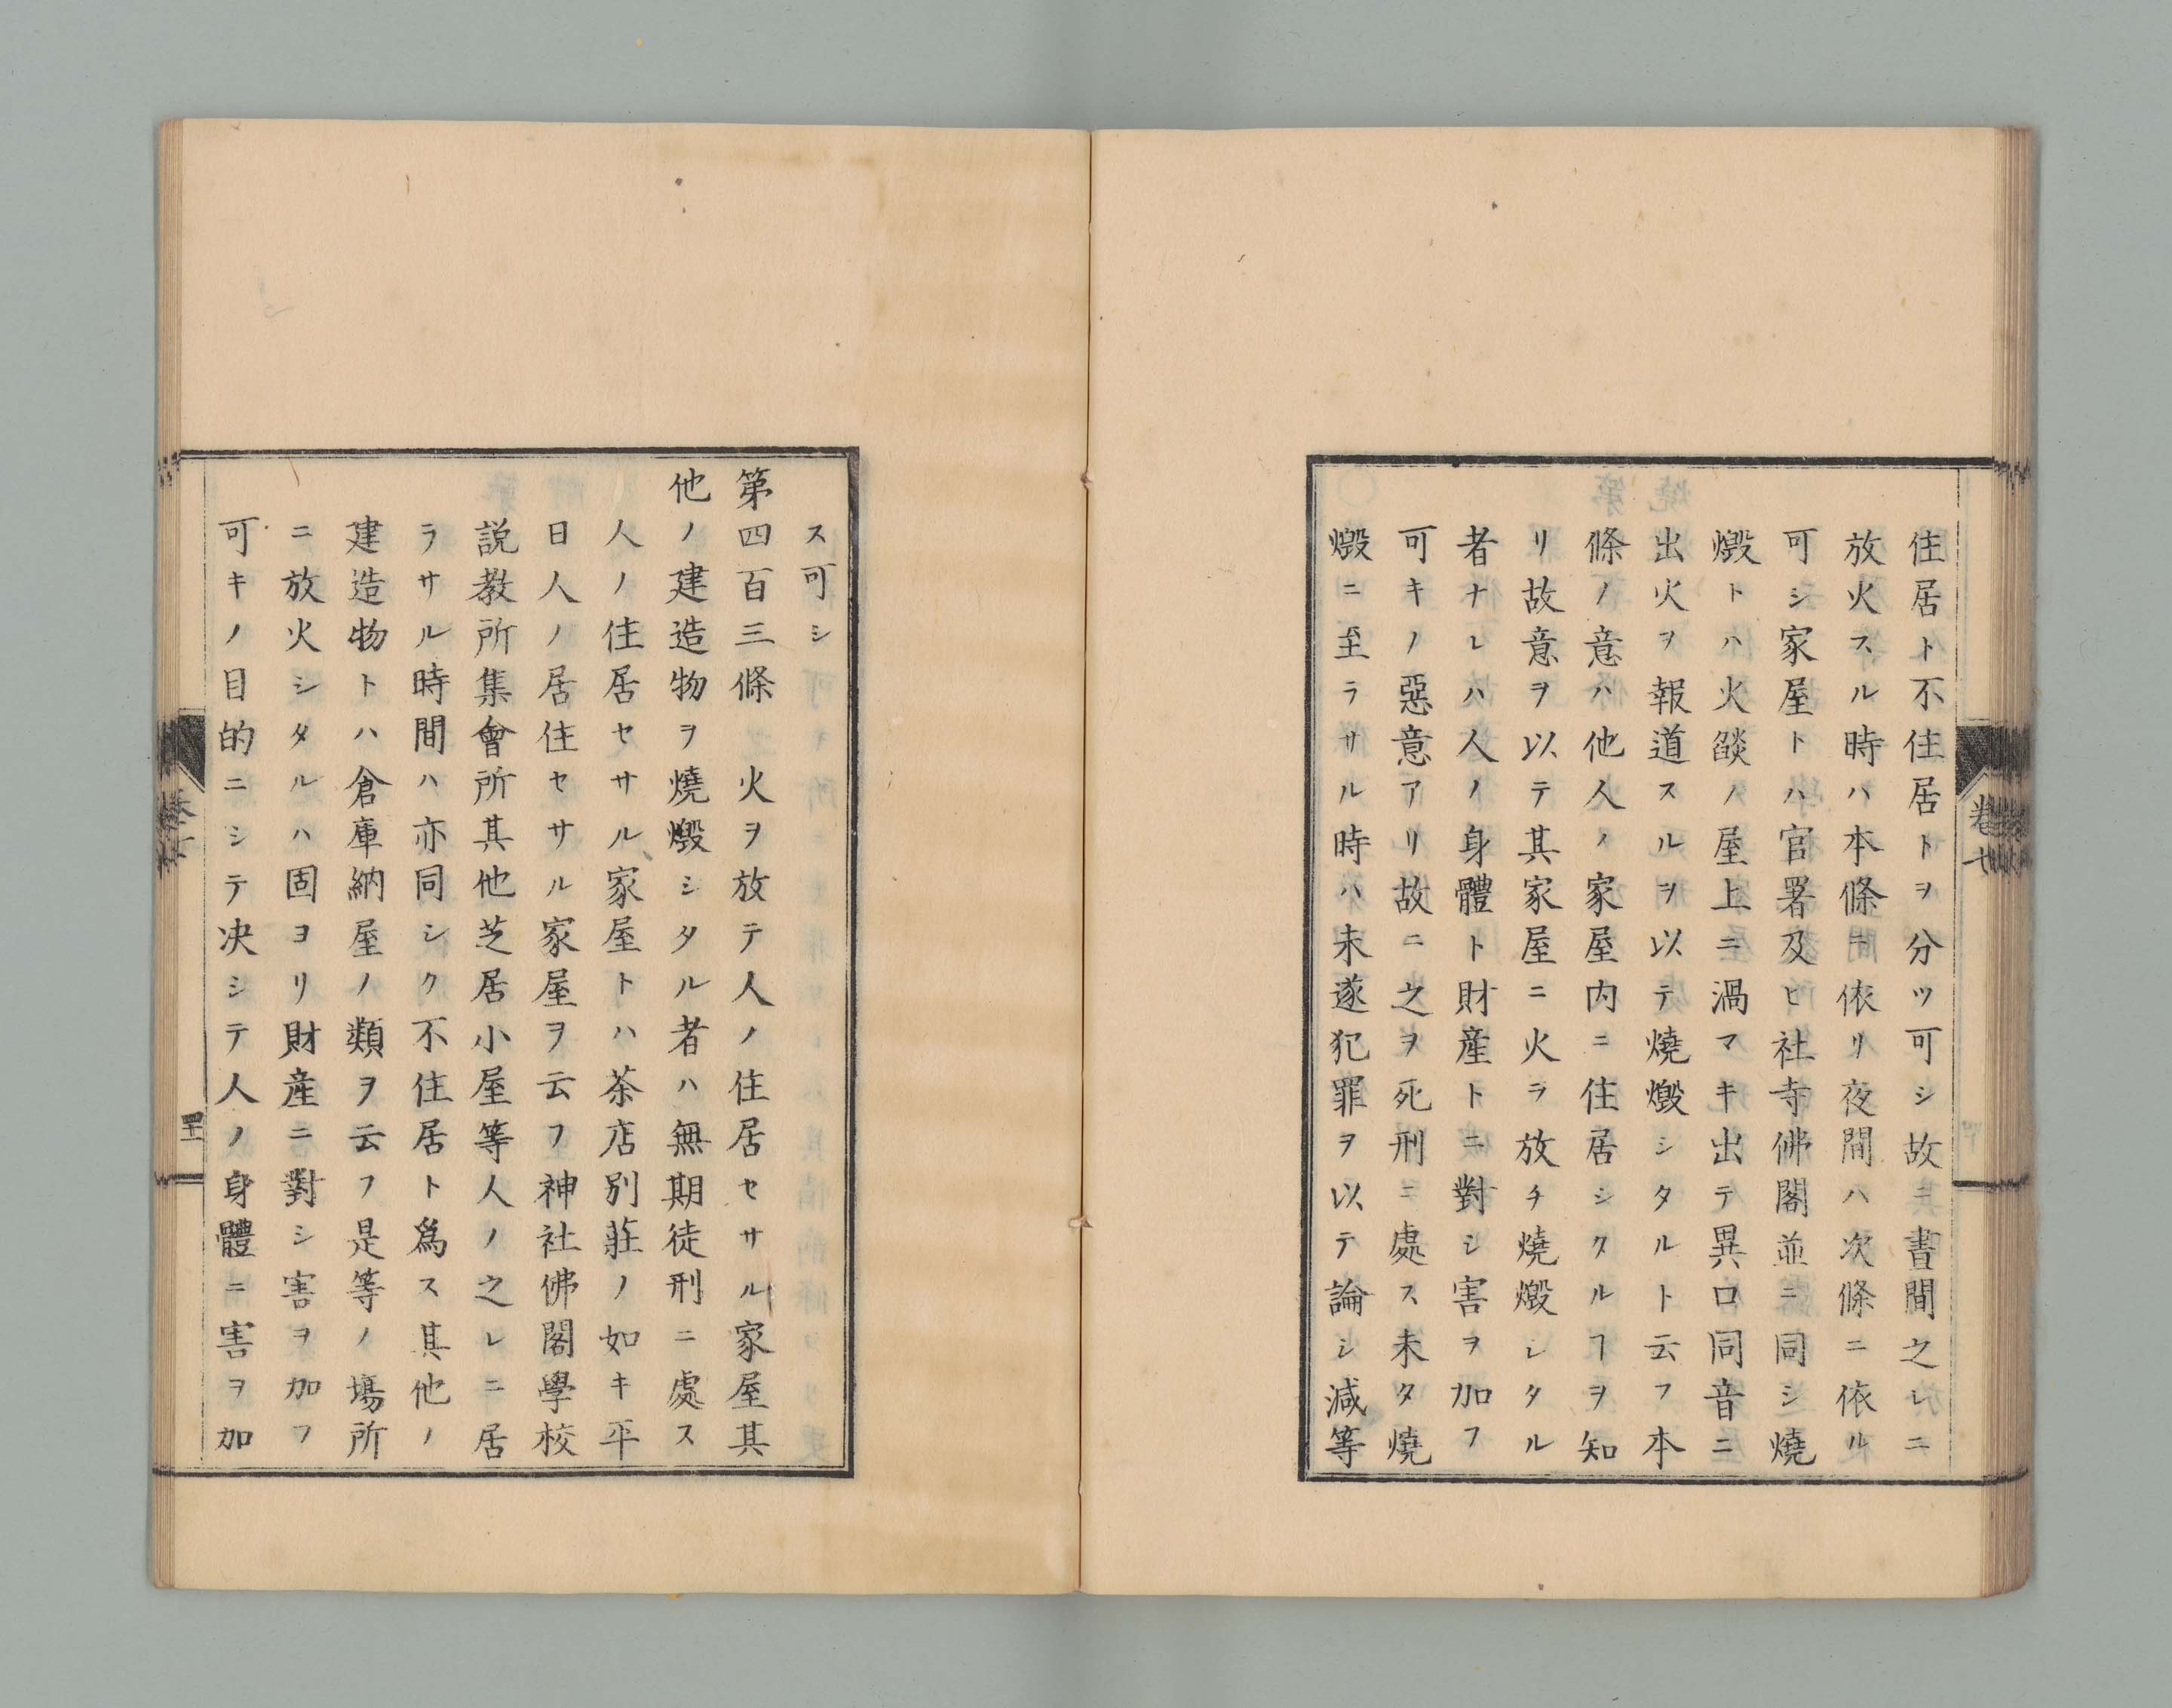 住居ト不住居トヲ分ツ可シ故ニ晝間之レニ
放火スル時ハ本條ニ依リ夜間ハ次條ニ依ル
可シ家屋トハ官署及ヒ社寺佛閣並ニ同シ燒
燬トハ火燄ノ屋上ニ渦マキ出テ異口同音ニ
出火ヲ報道スルヲ以テ燒燬シタルト云フ本
條ノ意ハ他人ノ家屋内ニ住居シタルヿヲ知
リ故意ヲ以テ其家屋ニ火ヲ放チ燒燬シタル
者ナレハ人ノ身體ト財産トニ對シ害ヲ加フ
可キノ惡意アリ故ニ之ヲ死刑ニ處ス未タ燒
燬ニ至ラサル時ハ未遂犯罪ヲ以テ論シ減等
ス可シ
第四百三條 火ヲ放テ人ノ住居セサル家屋其
他ノ建造物ヲ燒燬シタル者ハ無期徒刑ニ處ス
人ノ住居セサル家屋トハ茶店別莊ノ如キ平
日人ノ居住セサル家屋ヲ云フ神社佛閣學校
説教所集會所其他芝居小屋等人ノ之レニ居
ラサル時間ハ亦同シク不住居ト爲ス其他ノ
建造物トハ倉庫納屋ノ類ヲ云フ是等ノ塲所
ニ放火シタルハ固ヨリ財産ニ對シ害ヲ加フ
可キノ目的ニシテ决シテ人ノ身體ニ害ヲ加